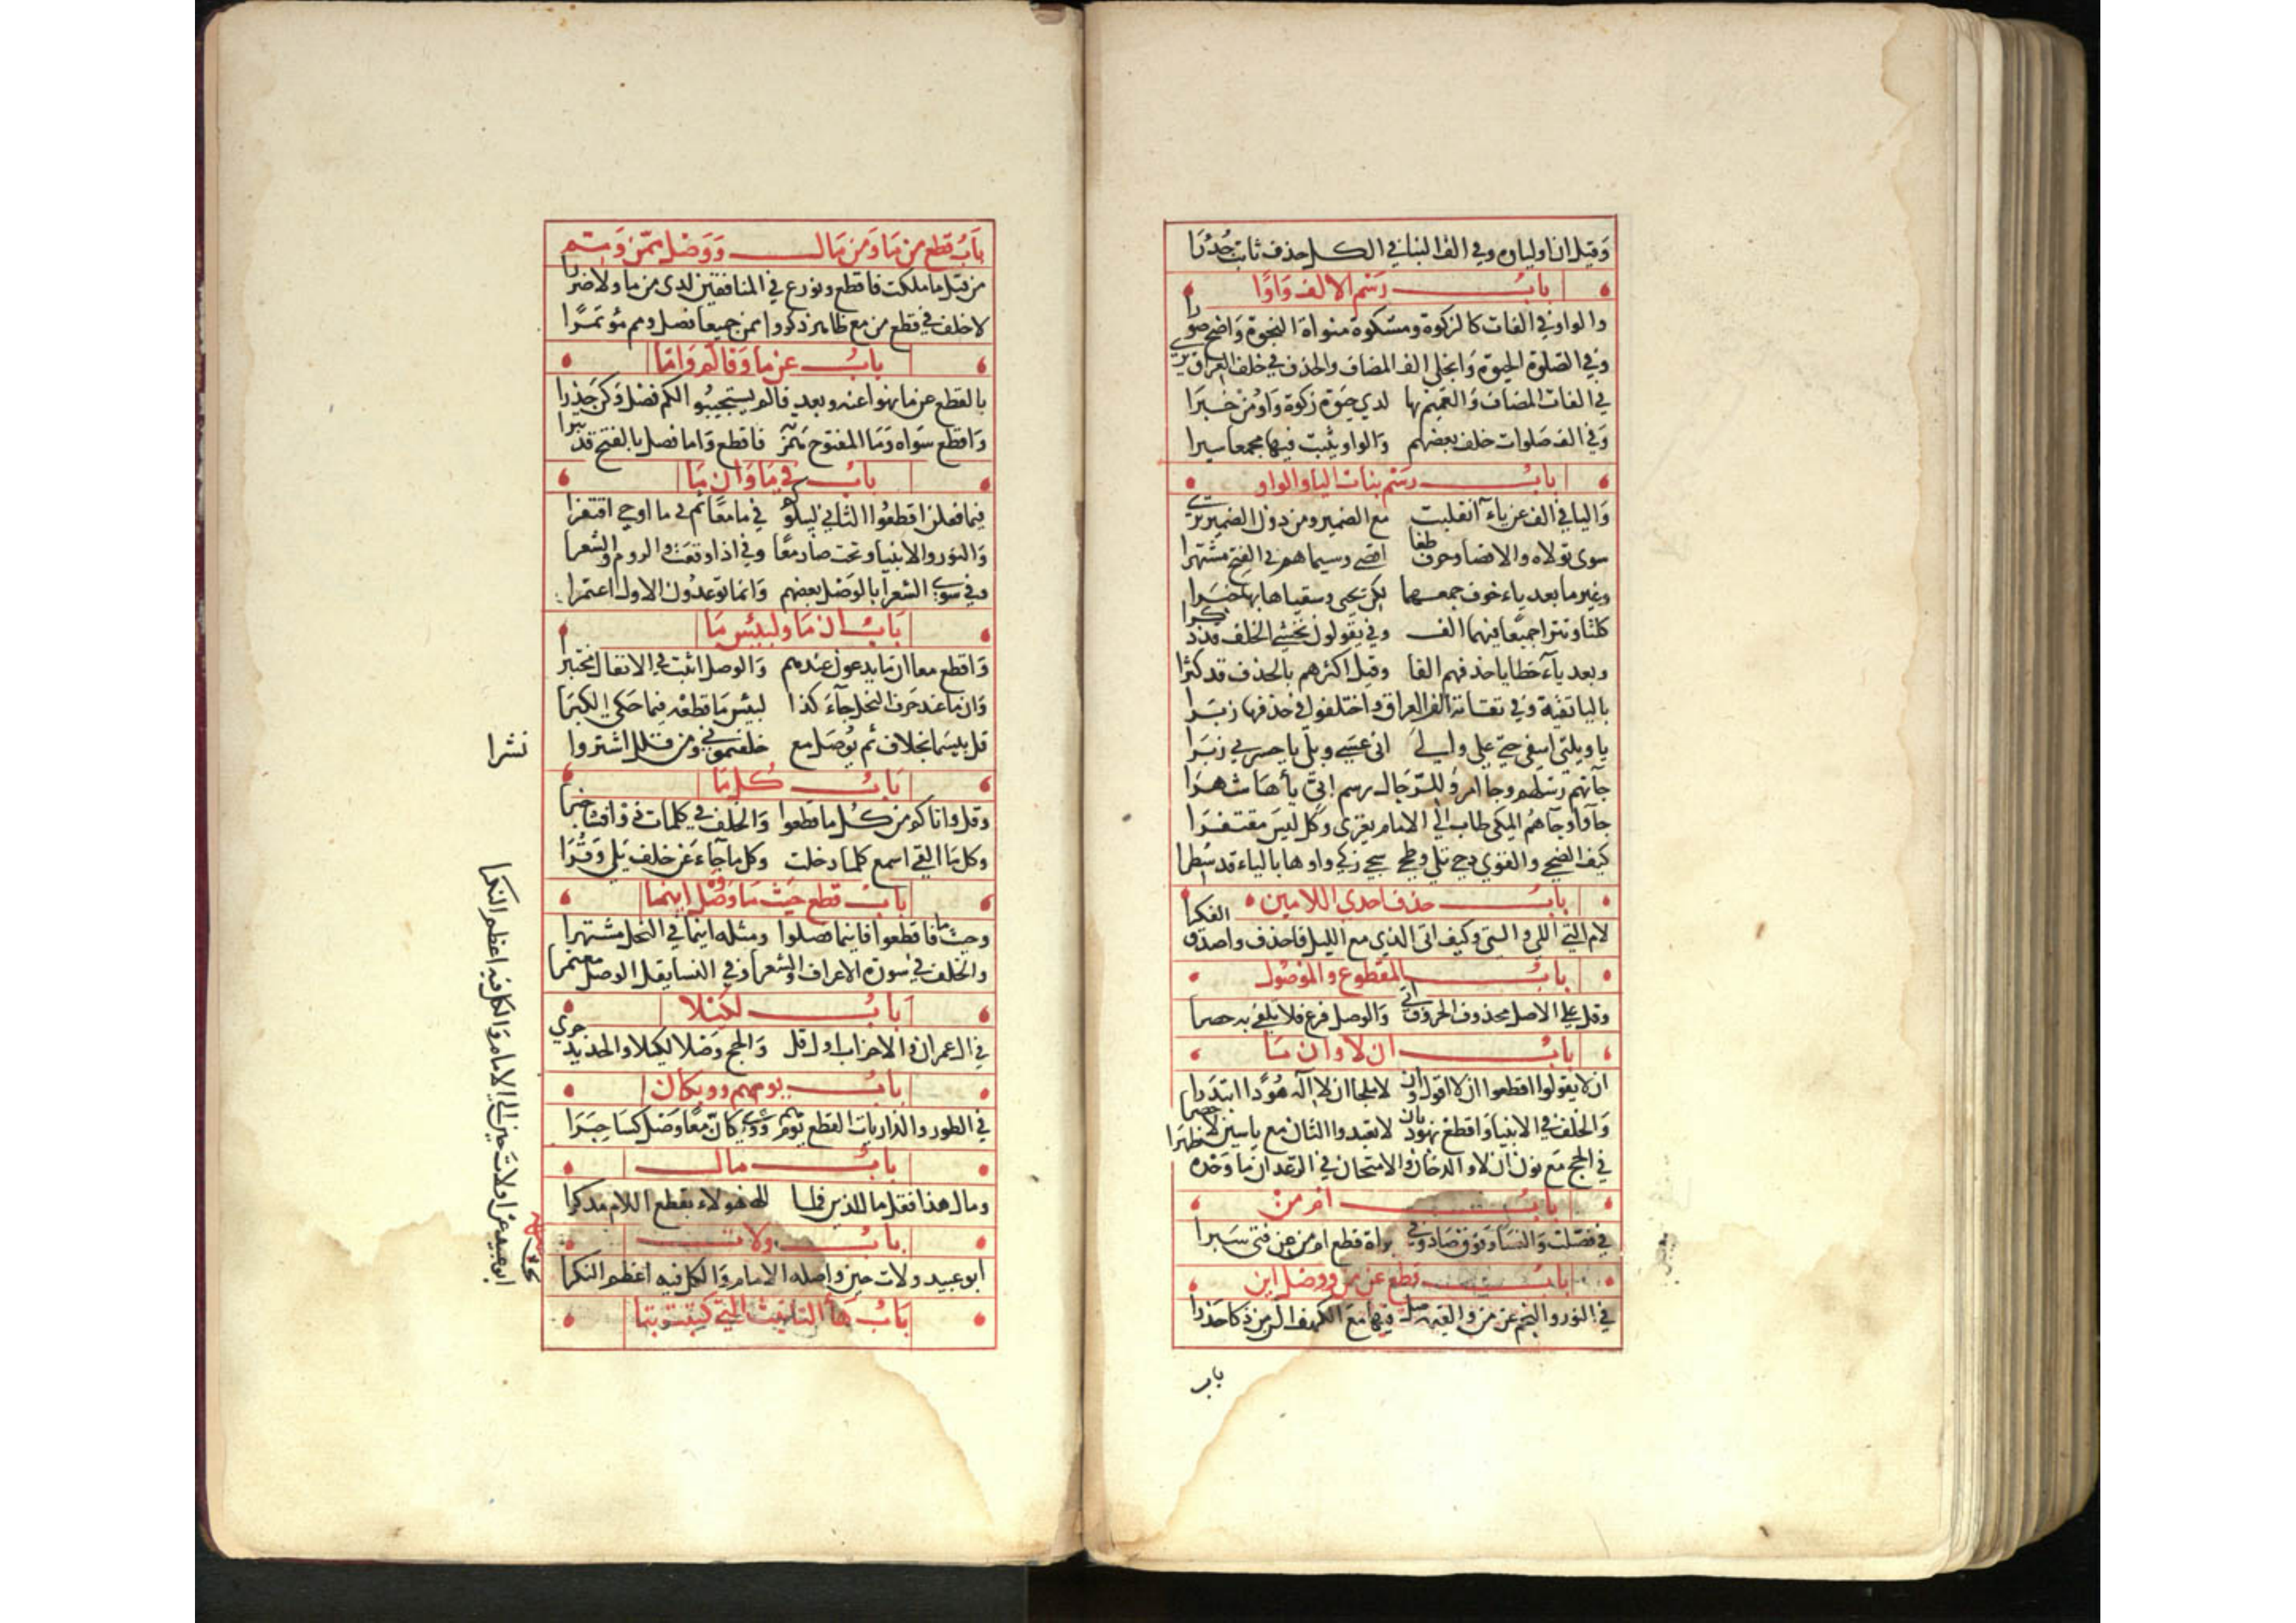 وقيل ان اولياوه وفي الف البنا في الكل حذف ثابت جدرا
باب رسم الالف واوا
والواو في الفات كالزكوة ومشكوة منواة النجوة واضح صورا
وفي الصلوة الحيوة وانجلى الف المضاف والحذف في خلف العراق يرى
في الفات المضاف والعميم بها لدي حيوة زكوة واو من خبرا
وفي الف صلوات خلف بعضهم والواو يثبت فيها مجمعا سيرا
باب رسم بنات اليا والواو
واليا في الف عن ياء انقلبت مع الضمير ومن دون الضمير يرى
سوى تولاه والاقصا وحرف طغا اقصى وسيماهم في الفتح مشتهرا
وغير ما بعد ياء خوف جمعهما لكن يحيى وسقياها بها حبرا
كلتا وتترا جميعا فيهما الف وفي يقولون نخشى الخلف قد ذكرا
وبعد ياء خطايا حذفهم الفا وقيل اكثرهم بالحذف قد كثرا
باليا تقية وفي تقاته الف العراق واختلفوا في حذفها زبرا
يا ويلتى اسفى حتى على والى انى عسى وبلى يا حسرتى زبرا
جاتهم رسلهم وجا امر وللرجال رسم ابي يأها شهرا
جاؤا وجاهم المكى طاب الى الامام يعزى وكل ليس مقتفرا
كيف الضحى والقوى دحى تلى وطحى سجى زكى واوها بالياء قد سطرا
باب حذف احدى اللامين
لام التي اللئ والتي وكيف اتى الذي مع الليل فاحذف واصدق الفكرا
باب المقطوع والموصول
وقل على الاصل محذوف الحروف اتى والوصل فرع فلا يلفى به حصرا
باب ان لا وان ما
ان لا يقولوا اقطعوا ان لا اقول وان لا ملجا ان لا اله هود ابتدرا
والخلف في الانبيا واقطع بهود بان لا تعبدوا الثان مع ياسين لا حصرا
في الحج مع نون ان لا والدخان والامتحان في الرعد ان ما وحده ظهرا
باب ام من
في فصلت والنسا وفوق صاد وفي براة قطع ام من عن فتى سبرا
باب قطع عن من ووصل الن
في النور والنجم عن من والقيمة صل فيها مع الكهف الن من ذكا حذرا
باب
باب قطع من ما ومن مال ووصل ممن ومم
من قبل ما ملكت فاقطع ونوزع في المنافقين لدى من ما ولا ضررا
لا خلف في قطع من مع ظاهر ذكروا ممن جميعا فصل ومم مؤتمرا
باب عن ما وفالم واما
بالقطع عن ما نهوا عنه وبعد فالم يستجيبوا لكم فصل وكن حذرا
واقطع سواه وما المفتوح همز فاقطع واما فصل بالفتح قد نبرا
باب في ما وان ما
فيما فعلن اقطعوا الثاني ليبلوكم في ما معا ثم في ما اوحي اقتفرا
والنور والانبيا وتحت صاد معا وفي اذا وقعت والروم والشعرا
وفي سوى الشعرا بالوصل بعضهم وانما توعدون الاول اعتمرا
باب ان ما ولبئس ما
واقطع معا ان ما يدعون عندهم والوصل اثبت في الانفال مختبرا
وان ما عند حرف النحل جاء كذا لبئس ما قطعه فيما حكى الكبرا
قل بئسما بخلاف ثم يوصل مع خلفتموني ومن قبل اشتروا
نشرا
باب كل ما
وقل واتاكم من كل ما قطعوا والخلف في كلما ردوا فشا خبرا
وكل ما القي اسمع كلما دخلت وكل ما جاء عن خلف يلي وقرا
باب قطع حيث ما ووصل اينما
وحيث ما فاقطعوا فاينما فصلوا ومثله اينما في النحل مشتهرا
والخلف في سورة الاعراف والشعرا وفي النسا يقل الوصل معتمرا
باب لكيلا
في ال عمران والاحزاب اول قل والحج وصلا لكيلا والحديد جرى
باب يوم هم وويكان
في الطور والذاريات القطع يوم هم وويكان معا وصل كسا حبرا
باب مال
ومال هذا فقل مال الذين فمال هولاء بقطع اللام مدكرا
باب ولات
ابو عبيد ولات حين واصله الامام والكل فيه اعظم النكرا
ابو عبيد عزا ولات حين الى الامام والكل فيه اعظم النكرا
باب هاء التانيث التي كتبت تا